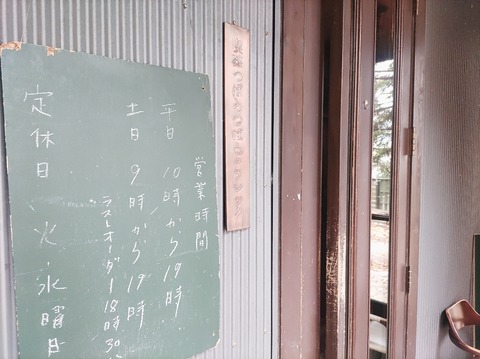 営業時間
平日 10時から19時
土日 9時から19時
ラストオーダー18時30
定休日 火・水曜日